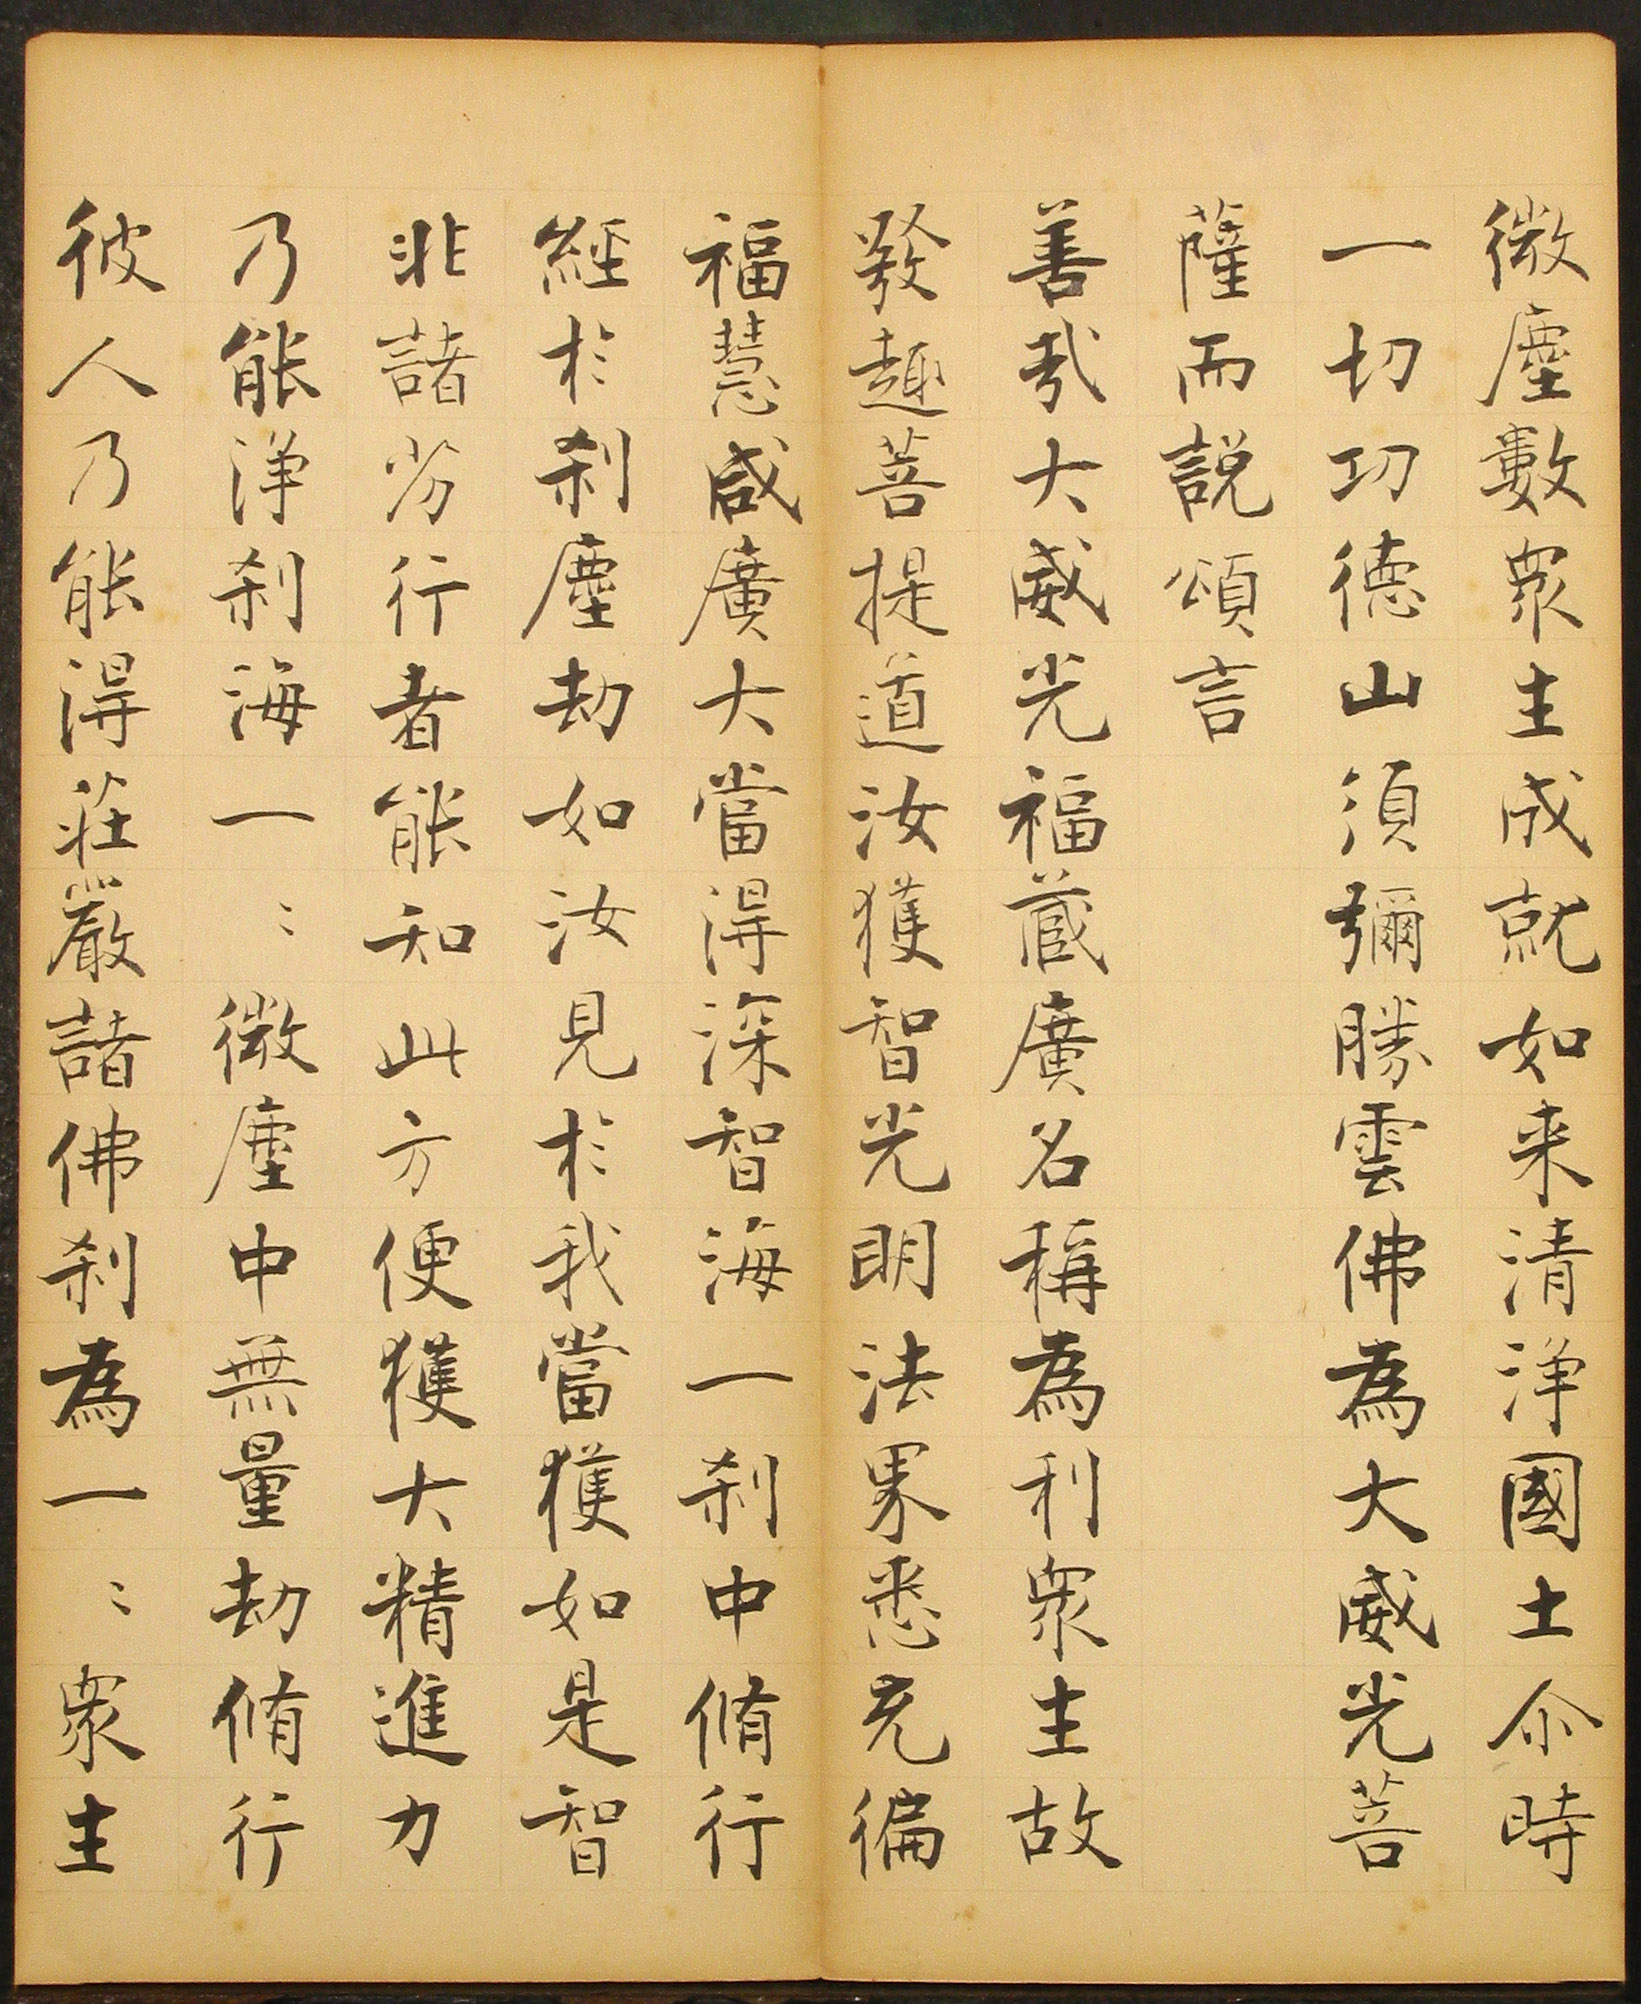 微塵數衆生成就如来清淨國土尒時
一切功德山須彌勝雲佛為大威光菩
薩而説頌言
善哉大威光福藏廣名稱為利衆生故
發趣菩提道汝獲智光明法界悉充徧
福慧咸廣大當得深智海一刹中脩行
經於刹塵劫如汝見於我當獲如是智
非諸劣行者能知此方便獲大精進力
乃能淨刹海一〻微塵中無量劫脩行
彼人乃能得莊嚴諸佛刹為一〻衆生